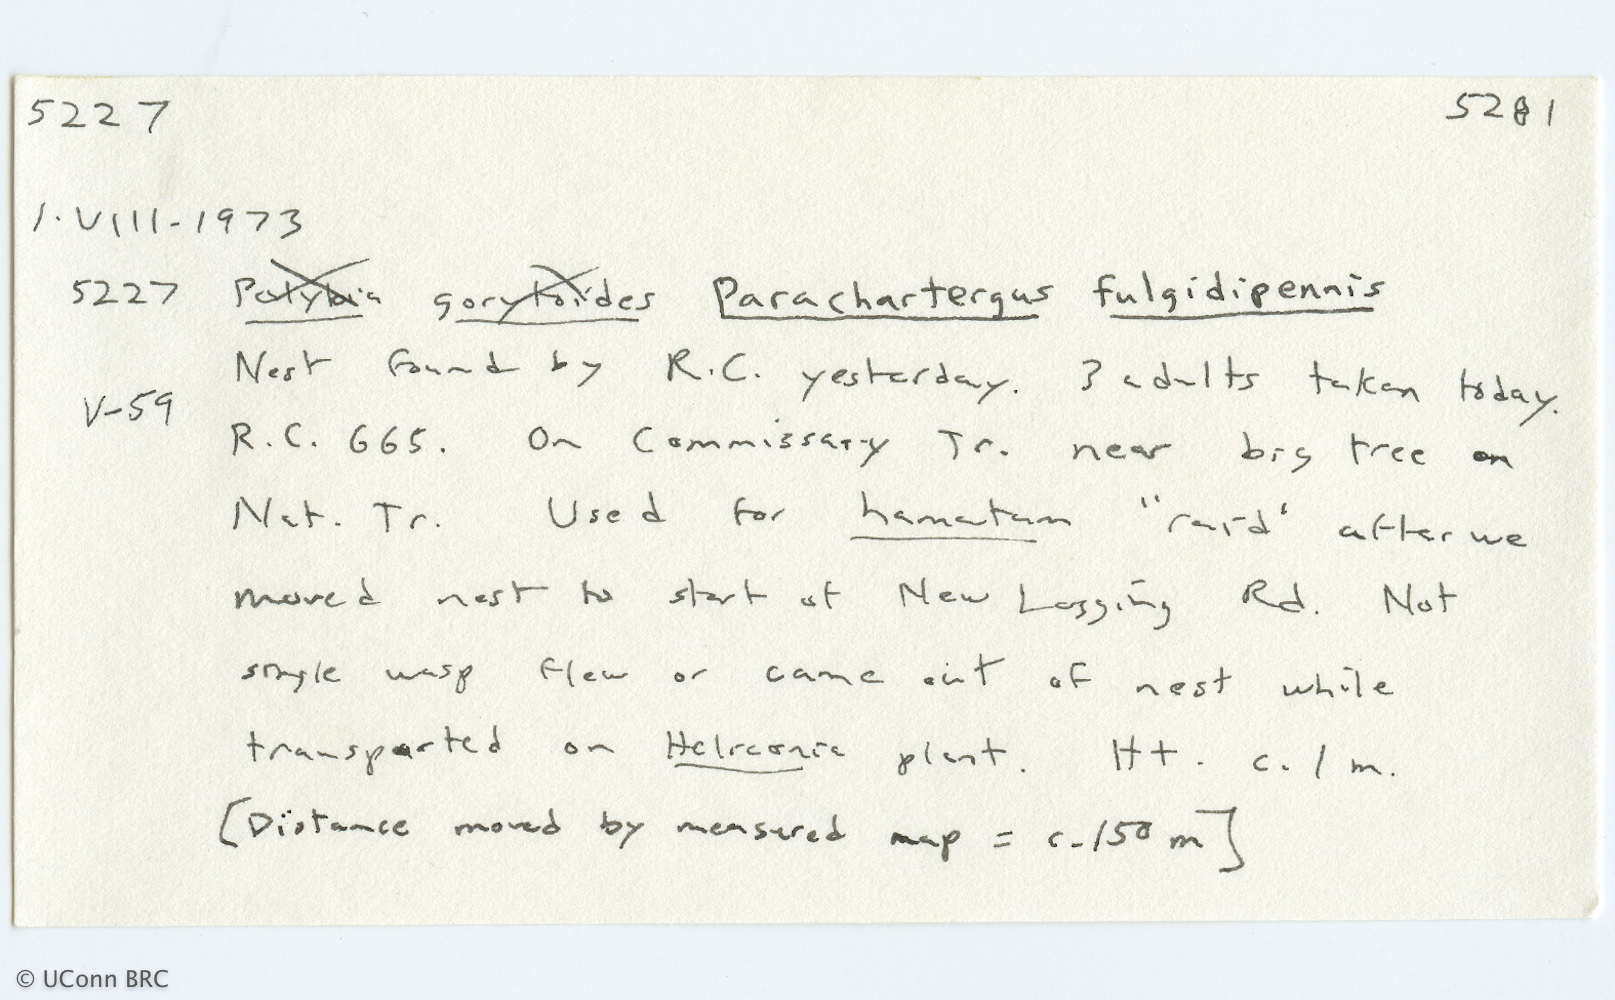 5227 5281
1-VIII-1973
5227 Polybia gorytoides Parachartergus fulgidipennis
Nest found by R.C. yesterday. 3 adults taken today.
V-59
R.C. 665. On Commissary Tr. near big tree on
Nat. Tr. Used for hamatum "raid" after we
moved nest to start of New Logging Rd. Not
single wasp flew or came out of nest while
transported on Heliconia plant. Ht. c. 1 m.
[Distance moved by measured map = c. 150 m]
© UConn BRC